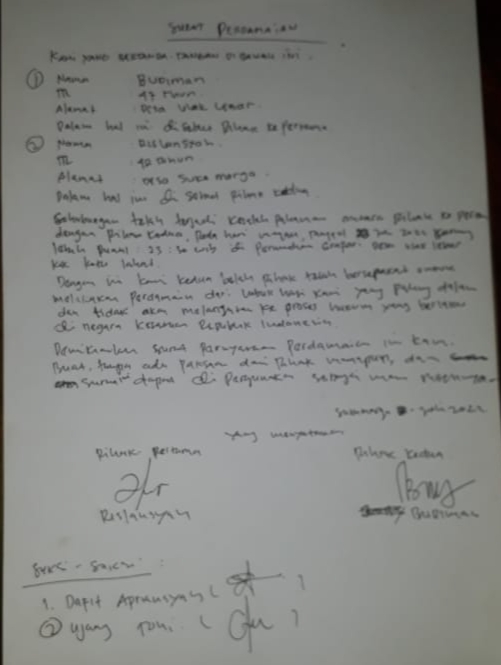 SURAT PERDAMAIAN
Kami yang bertanda tangan di bawah ini :
① Nama : BUDIMAN
: 47 tahun
Alamat : Desa Ulak Lebar
Dalam hal ini di sebut Pihak ke pertama
② Nama : Rislansyah
: 42 tahun
Alamat : Desa Suka marga
Dalam hal ini di sebut Pihak kedua
telah terjadi antara Pihak ke
dengan Pihak kedua, Pada hari tanggal
lebih Pukul : 23 : 30 wib di Desa Ulak lebar
Kec Lahat.
Dengan ini kami kedua belah Pihak telah bersepakat
melakukan Perdamaian dari hati kami yang paling dalam
dan tidak akan melanjutkan ke proses hukum yang berlaku
di negara Kesatuan Republik Indonesia.
Demikianlah Surat Pernyataan Perdamaian ini kami
Buat, tanpa ada Paksaan dari Pihak manapun, dan
surat dapat di Pergunakan sebagai mana mestinya.
Sukamarga - Juli 2022
yang menyatakan
Pihak Pertama Pihak kedua
Rislansyah BUDIMAN
Saksi - Saksi :
1. Dafit Apriansyah ( )
② Ujang Toni. ( )